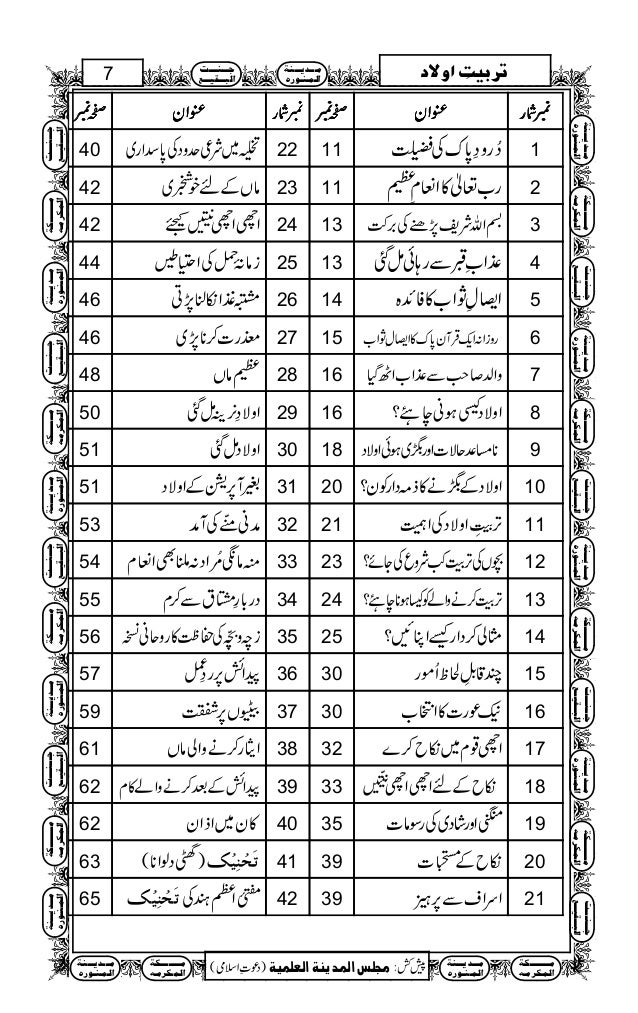 تربیتِ اولاد
7
نمبر شمار عنوان صفحہ نمبر نمبر شمار عنوان صفحہ نمبر
1 دُرودِ پاک کی فضیلت 11 22 تخلیہ میں شرعی حدود کی پاسداری 40
2 رب تعالیٰ کا انعامِ عظیم 11 23 ماں کے لئے خوشخبری 42
3 بسم اللہ شریف پڑھنے کی برکت 13 24 اچھی اچھی نیتیں کیجئے 42
4 عذابِ قبر سے رہائی مل گئی 13 25 زمانۂ حمل کی احتیاطیں 44
5 ایصالِ ثواب کا فائدہ 14 26 مشتبہ غذا نکالنا پڑتی 46
6 روزانہ ایک قرآن پاک کا ایصالِ ثواب 15 27 معذرت کرنا پڑی 46
7 والد صاحب سے عذاب اٹھ گیا 16 28 عظیم ماں 48
8 اولاد کیسی ہونی چاہئے؟ 16 29 اولادِ نرینہ مل گئی 50
9 نامساعد حالات اور بگڑی ہوئی اولاد 18 30 اولاد مل گئی 51
10 اولاد کے بگڑنے کا ذمہ دار کون؟ 20 31 بغیر آپریشن کے اولاد 51
11 تربیتِ اولاد کی اہمیت 21 32 مدنی منّے کی آمد 53
12 بچوں کی تربیت کب شروع کی جائے؟ 23 33 منہ مانگی مُراد نہ ملنا بھی انعام 54
13 تربیت کرنے والے کو کیسا ہونا چاہئے؟ 24 34 دربارِ مشتاق سے کرم 55
14 مثالی کردار کیسے اپنائیں؟ 25 35 زچہ و بچّہ کی حفاظت کا روحانی نسخہ 56
15 چند قابلِ لحاظ اُمور 30 36 پیدائش پر ردِّ عمل 57
16 نیک عورت کا انتخاب 30 37 بیٹیوں پر شفقت 59
17 اچھی قوم میں نکاح کرے 32 38 ایثار کرنے والی ماں 61
18 نکاح کے لئے اچھی اچھی نیّتیں 33 39 پیدائش کے بعد کرنے والے کام 62
19 منگنی اور شادی کی رسومات 35 40 کان میں اذان 62
20 نکاح کے مستحبات 39 41 تَحْنِیْک (گھٹی دلوانا) 63
21 اسراف سے پرہیز 39 42 مفتیٔ اعظم ہند کی تَحْنِیْک 65
پیش کش: مجلس المدینة العلمیة (دعوتِ اسلامی)